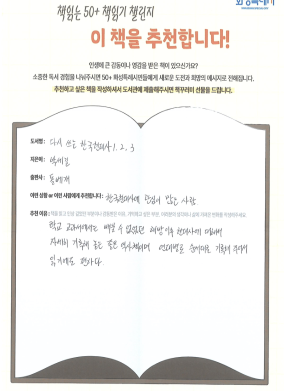 책읽는 50+ 책읽기 챌린지
이 책을 추천합니다!
인생에 큰 감동이나 영감을 받은 책이 있으신가요?
소중한 독서 경험을 나눠주시면 50+ 화성특례시민들에게 새로운 도전과 희망의 메시지로 전해집니다.
추천하고 싶은 책을 작성하셔서 도서관에 제출해주시면 책꾸러미 선물을 드립니다.
도서명: 다시 쓰는 한국현대사 1. 2. 3
지은이: 박세길
출판사: 돌베개
어떤 상황 or 어떤 사람에게 추천합니까: 한국현대사에 관심이 많은 사람
추천 이유:
학교 교과서에서는 배울 수 없었던 해방 이후 현대사에 대해서
자세히 기록해 놓은 좋은 역사책이며 연대별로 순서대로 기록이 되어
읽기에도 편하다.